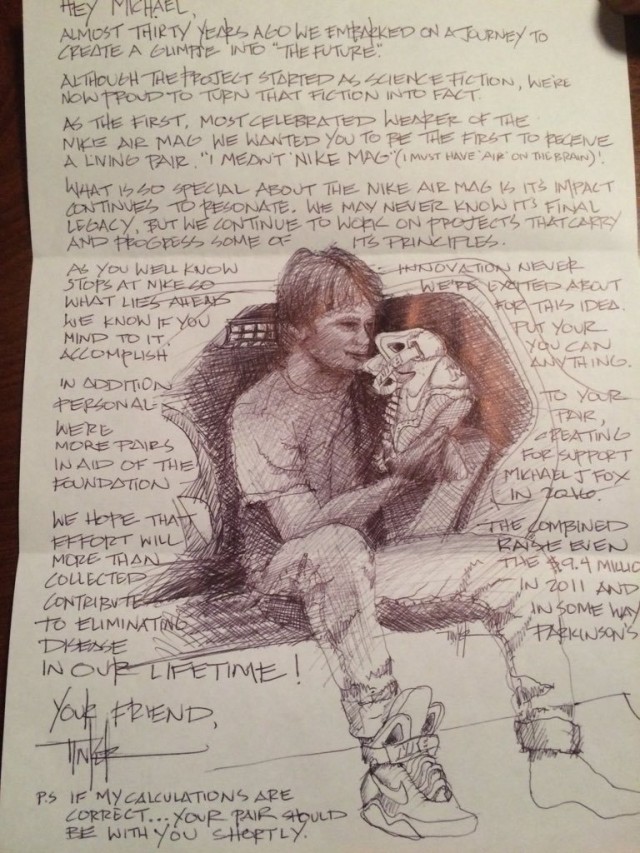 HEY MICHAEL,
ALMOST THIRTY YEARS AGO WE EMBARKED ON A JOURNEY TO
CREATE A GLIMPSE INTO "THE FUTURE".
ALTHOUGH THE PROJECT STARTED AS SCIENCE FICTION, WE'RE
NOW PROUD TO TURN THAT FICTION INTO FACT.
AS THE FIRST, MOST CELEBRATED WEARER OF THE
NIKE AIR MAG WE WANTED YOU TO BE THE FIRST TO RECEIVE
A LIVING PAIR. "I MEANT 'NIKE MAG' (I MUST HAVE 'AIR' ON THE BRAIN)'.
WHAT IS SO SPECIAL ABOUT THE NIKE AIR MAG IS IT'S IMPACT
CONTINUES TO RESONATE. WE MAY NEVER KNOW IT'S FINAL
LEGACY, BUT WE CONTINUE TO WORK ON PROJECTS THAT CARRY
AND PROGRESS SOME OF ITS PRINCIPLES.
AS YOU WELL KNOW INNOVATION NEVER
STOPS AT NIKE SO WE'RE EXCITED ABOUT
WHAT LIES AHEAD FOR THIS IDEA.
WE KNOW IF YOU PUT YOUR
MIND TO IT, YOU CAN
ACCOMPLISH ANYTHING.
IN ADDITION TO YOUR
PERSONAL PAIR,
WE'RE CREATING
MORE PAIRS FOR SUPPORT
IN AID OF THE MICHAEL J FOX
FOUNDATION IN 2016.
WE HOPE THAT THE COMBINED
EFFORT WILL RAISE EVEN
MORE THAN THE $9.4 MILLIO
COLLECTED IN 2011 AND
CONTRIBUTE IN SOME WAY
TO ELIMINATING PARKINSON'S
DISEASE
IN OUR LIFETIME!
TINKER
YOUR FRIEND,
TINKER
P.S IF MY CALCULATIONS ARE
CORRECT... YOUR PAIR SHOULD
BE WITH YOU SHORTLY.